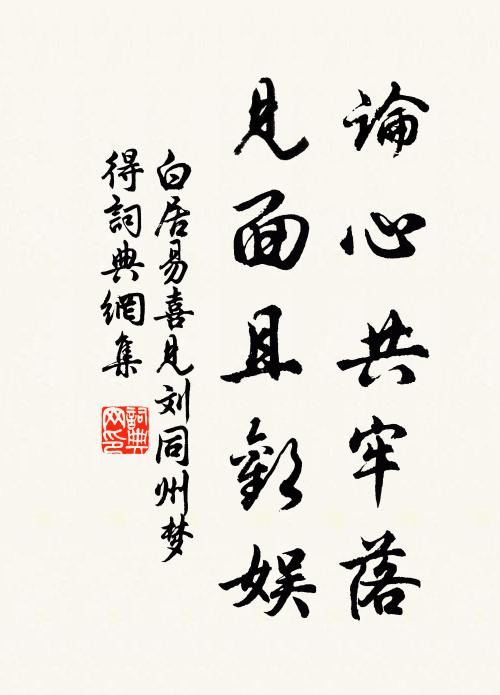 論心共牢落
見面且歡娱
白居易喜见刘同州梦
得詞典網集
詞典
网印